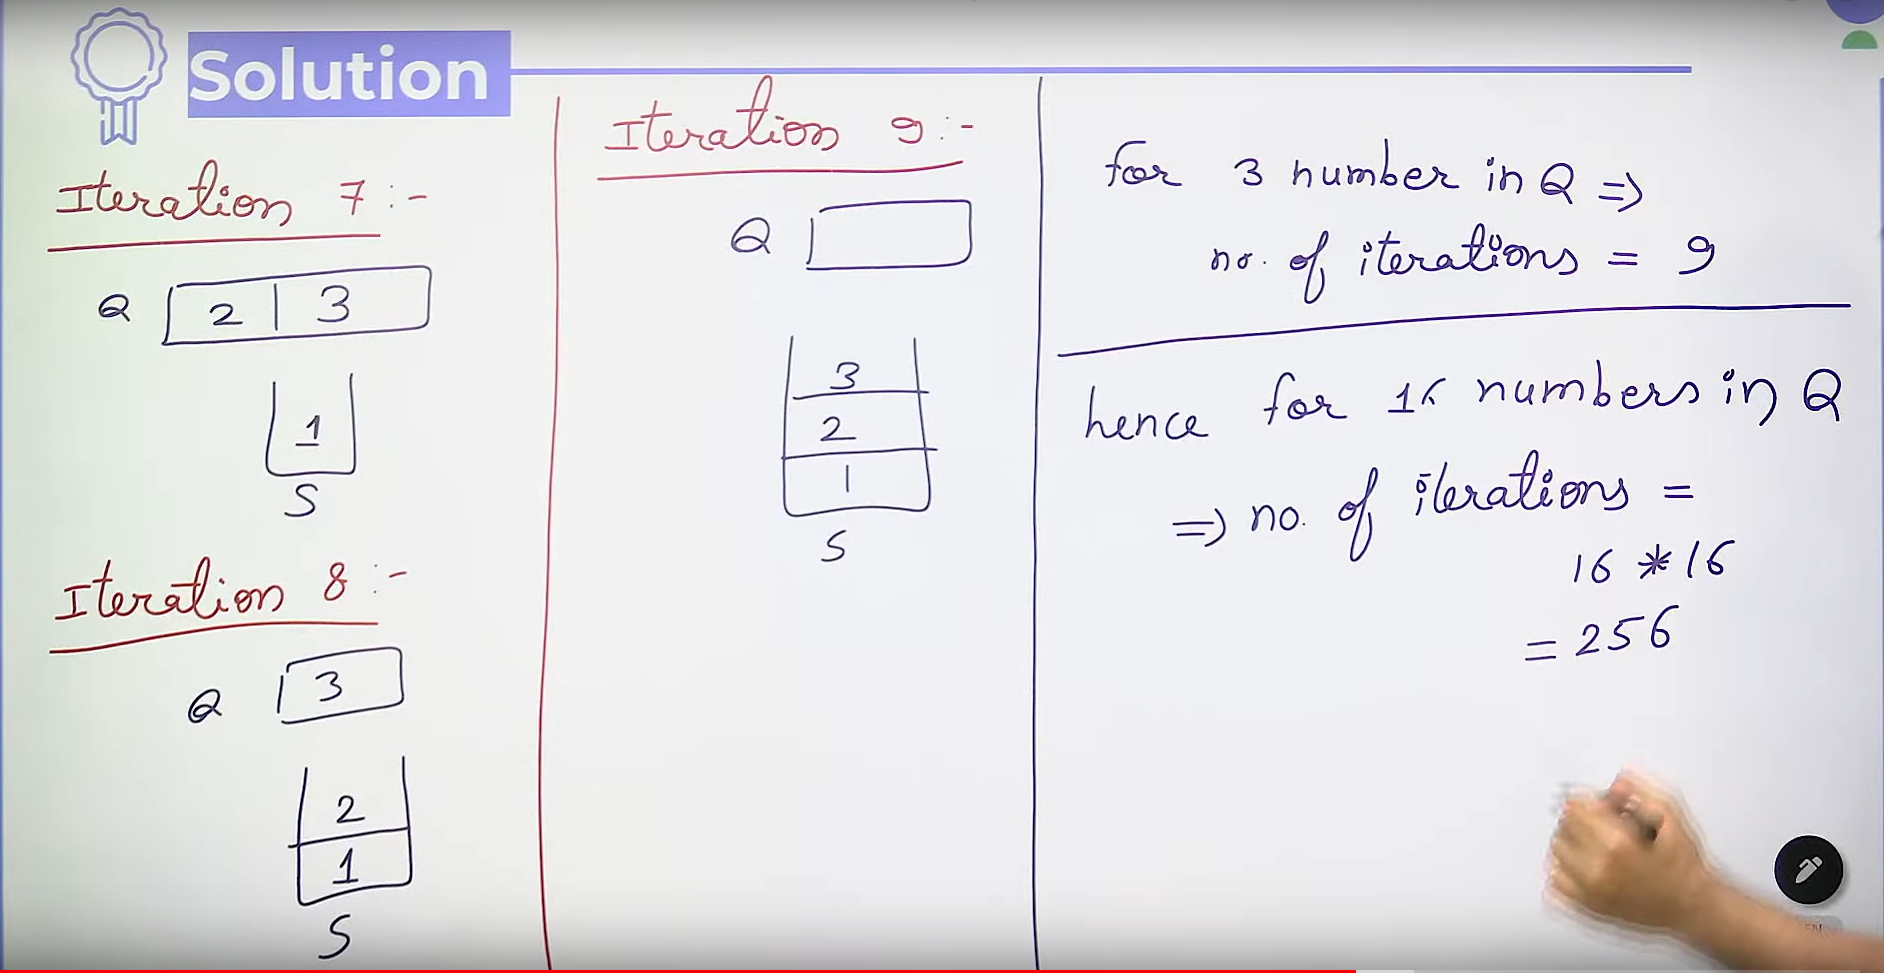 Solution
Iteration 7 :-
Q 2 3
1
S
Iteration 8 :-
Q 3
2
1
S
Iteration 9 :-
Q
3
2
1
S
for 3 number in Q =>
no. of iterations = 9
hence for 16 numbers in Q
=> no. of iterations =
16 * 16
= 256